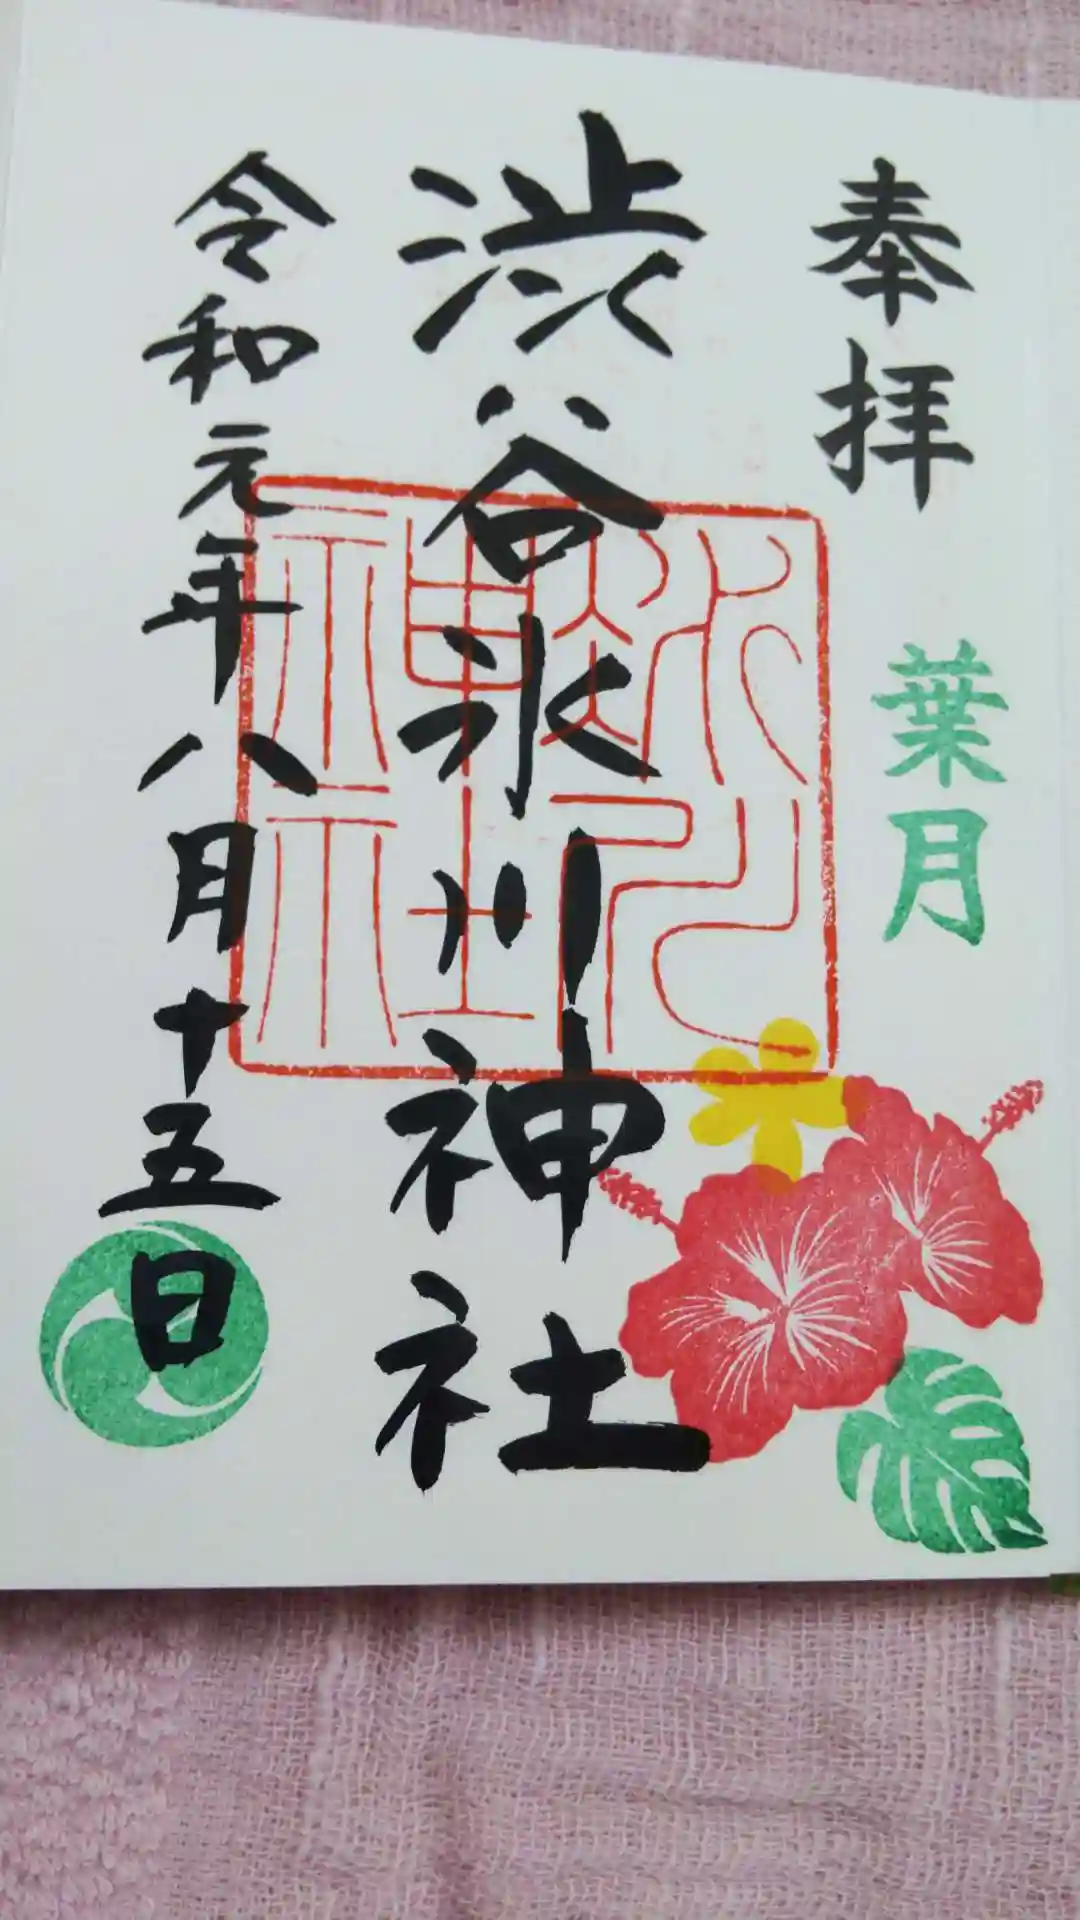 奉拝
葉月
渋谷氷川神社
令和元年八月十五日
氷川
神社